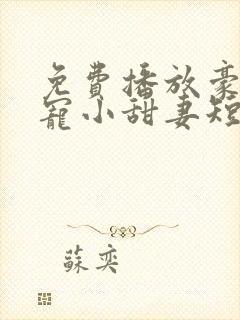 免費播放豪
寵小甜妻短
蘇奕